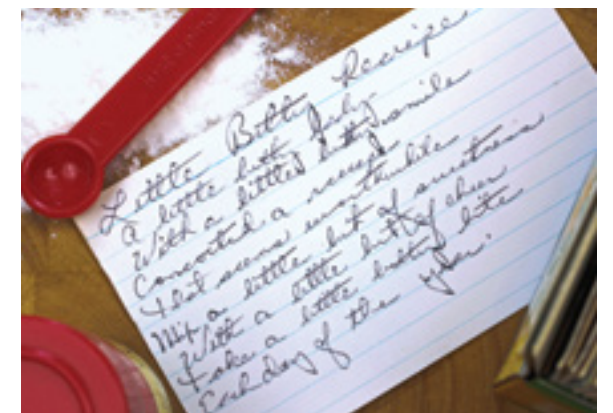 Little Bitty Recipe
A little bitt lady
With a little bitt smile
Concocted a receipt
That seems worthwhile
Mix a little bit of sweetness
With a little bit of cheer
Take a little bitty bite
Each day of the year.